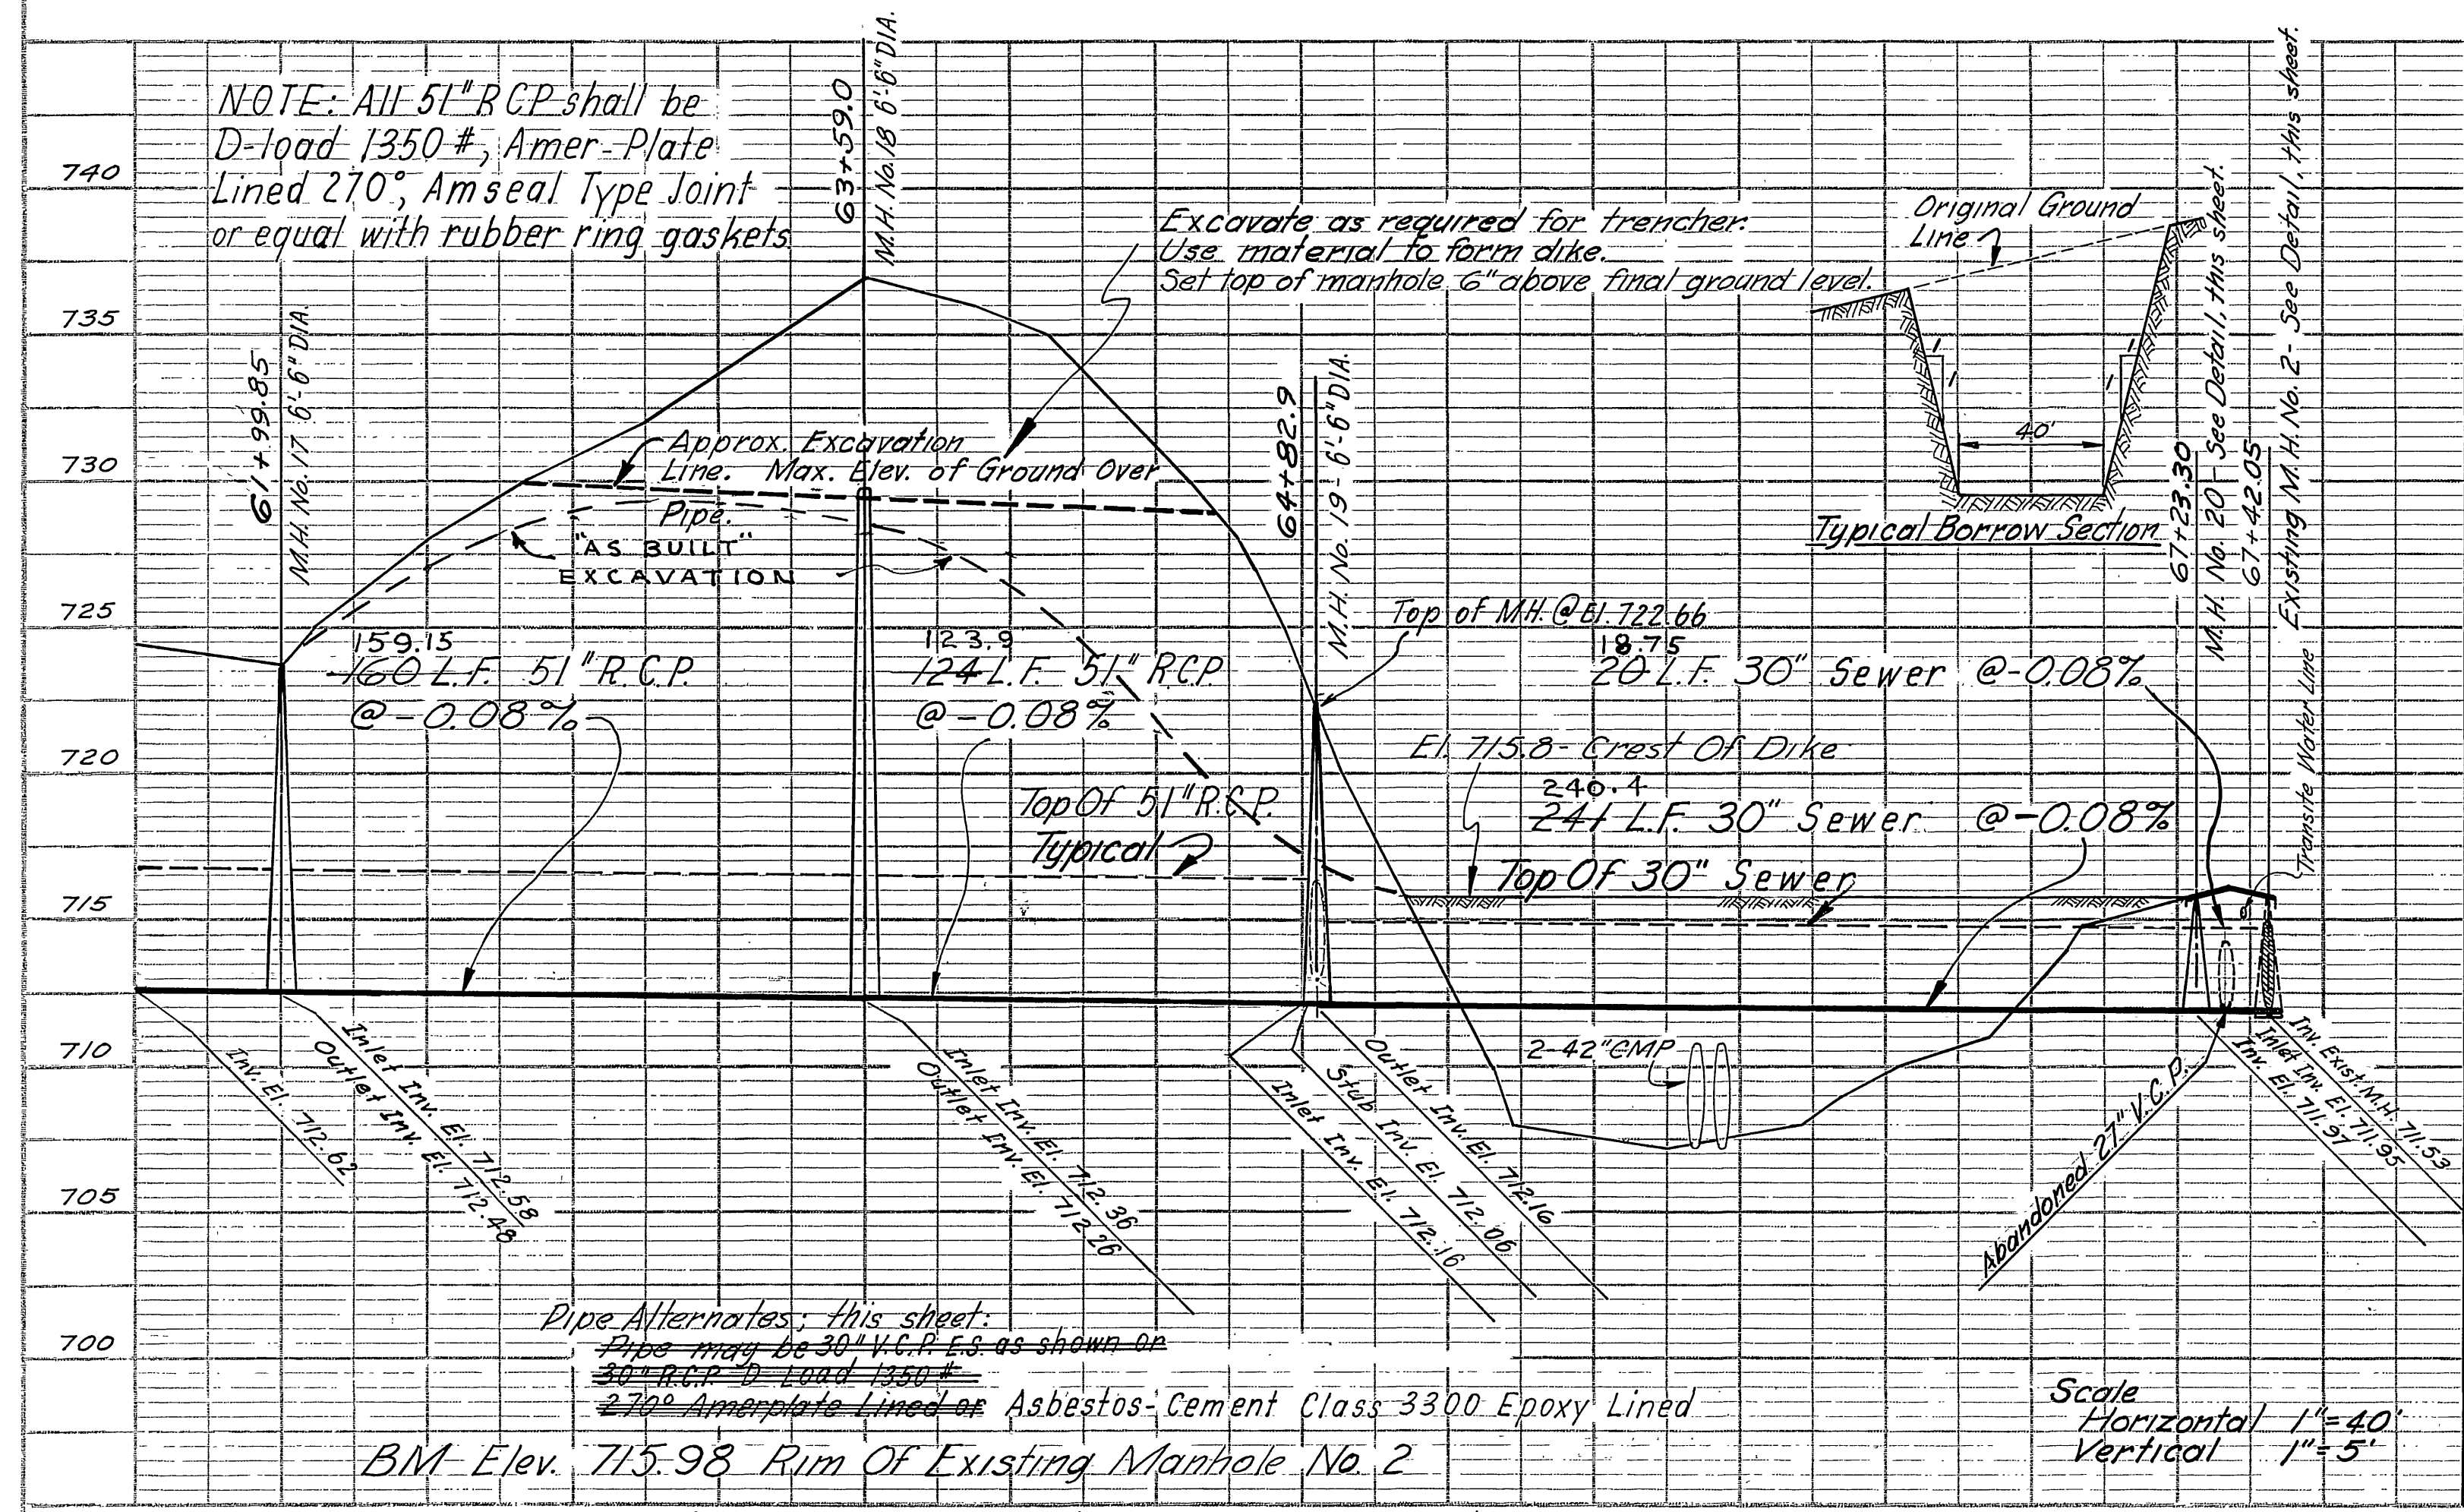 NOTE: All 51" RCP shall be
D-load 1350 #, Amer-Plate
Lined 270°, Amseal Type Joint
or equal with rubber ring gaskets
740
735
730
725
720
715
710
705
700
61+99.85
M.H. No. 17 6'-6" DIA.
63+59.0
M.H. No. 18 6'-6" DIA.
Excavate as required for trencher.
Use material to form dike.
Set top of manhole 6" above final ground level.
Original Ground
Line
40'
Typical Borrow Section
64+82.9
M.H. No. 19 - 6'-6" DIA.
67+23.30
M.H. No. 20 - See Detail, this sheet.
67+42.05
Existing M.H. No. 2 - See Detail, this sheet.
Transite Water Line
Approx. Excavation
Line. Max. Elev. of Ground Over
Pipe.
"AS BUILT"
EXCAVATION
159.15
160 L.F. 51" R.C.P.
@ -0.08%
123.9
124 L.F. 51" R.C.P.
@ -0.08%
Top of M.H. @ El. 722.66
18.75
20 L.F. 30" Sewer @ -0.08%
El. 715.8 - Crest Of Dike
240.4
241 L.F. 30" Sewer @ -0.08%
Top Of 51" R.C.P.
Typical
Top Of 30" Sewer
Inv. El. 712.62
Inlet Inv. El. 712.58
Outlet Inv. El. 712.48
Inlet Inv. El. 712.36
Outlet Inv. El. 712.26
Inlet Inv. El. 712.16
Stub Inv. El. 712.06
Outlet Inv. El. 712.16
2-42" CMP
Abandoned 27" V.C.P.
Inv. Exist. M.H. 711.53
Inlet Inv. El. 711.95
Inv. El. 711.97
Pipe Alternates; this sheet:
Pipe may be 30" V.C.P. E.S. as shown or
30" R.C.P. D Load 1350 #
270° Amerplate Lined or Asbestos-Cement Class 3300 Epoxy Lined
BM Elev. 715.98 Rim Of Existing Manhole No. 2
Scale
Horizontal 1"=40'
Vertical 1"=5'